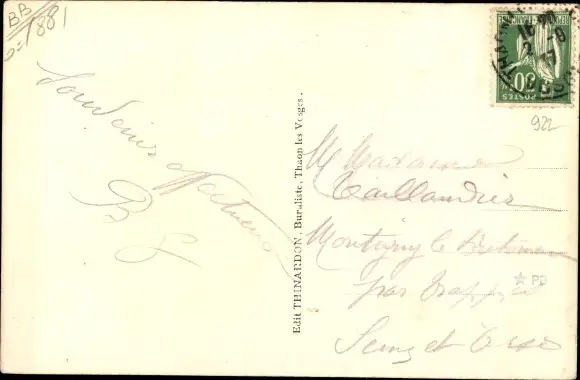 BB
1881
Souvenir affectueux
B S
Edit THINARDON, Buraliste, Thaon les Vosges.
POSTES
922
M Madame
Taillandier
Montigny le Bretonneux
par Trappes
Seine et Oise
PB